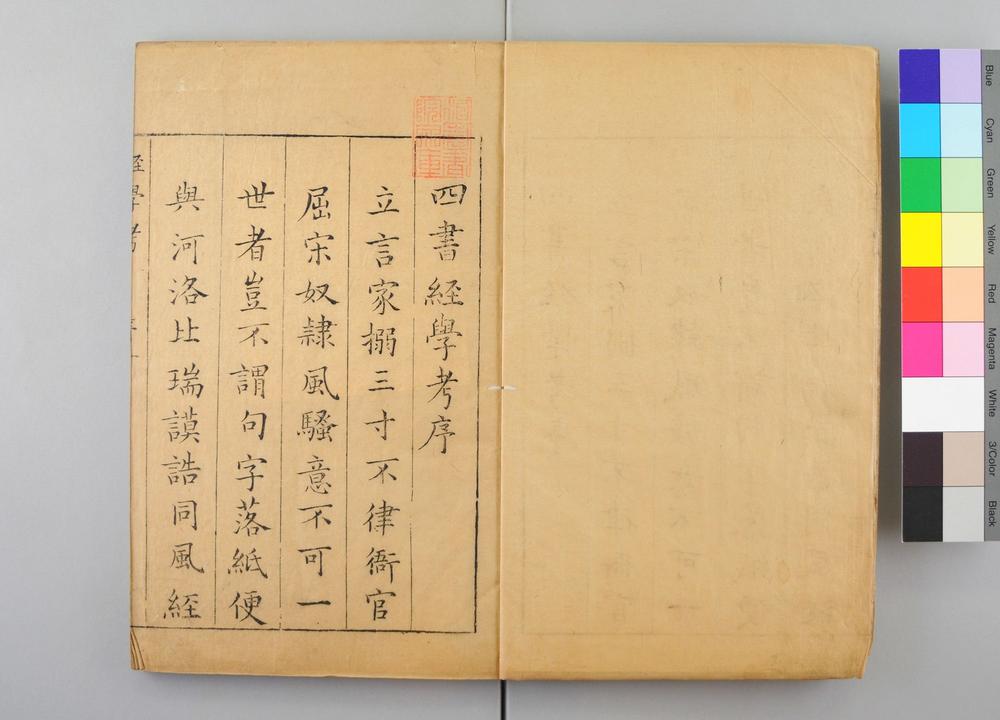 四書経學考序
立言家搦三寸不律衙官
屈宋奴隷風騷意不可一
世者豈不謂句字落紙便
與河洛比瑞謨誥同風経
経學考
Blue
Cyan
Green
Yellow
Red
Magenta
White
3/Color
Black